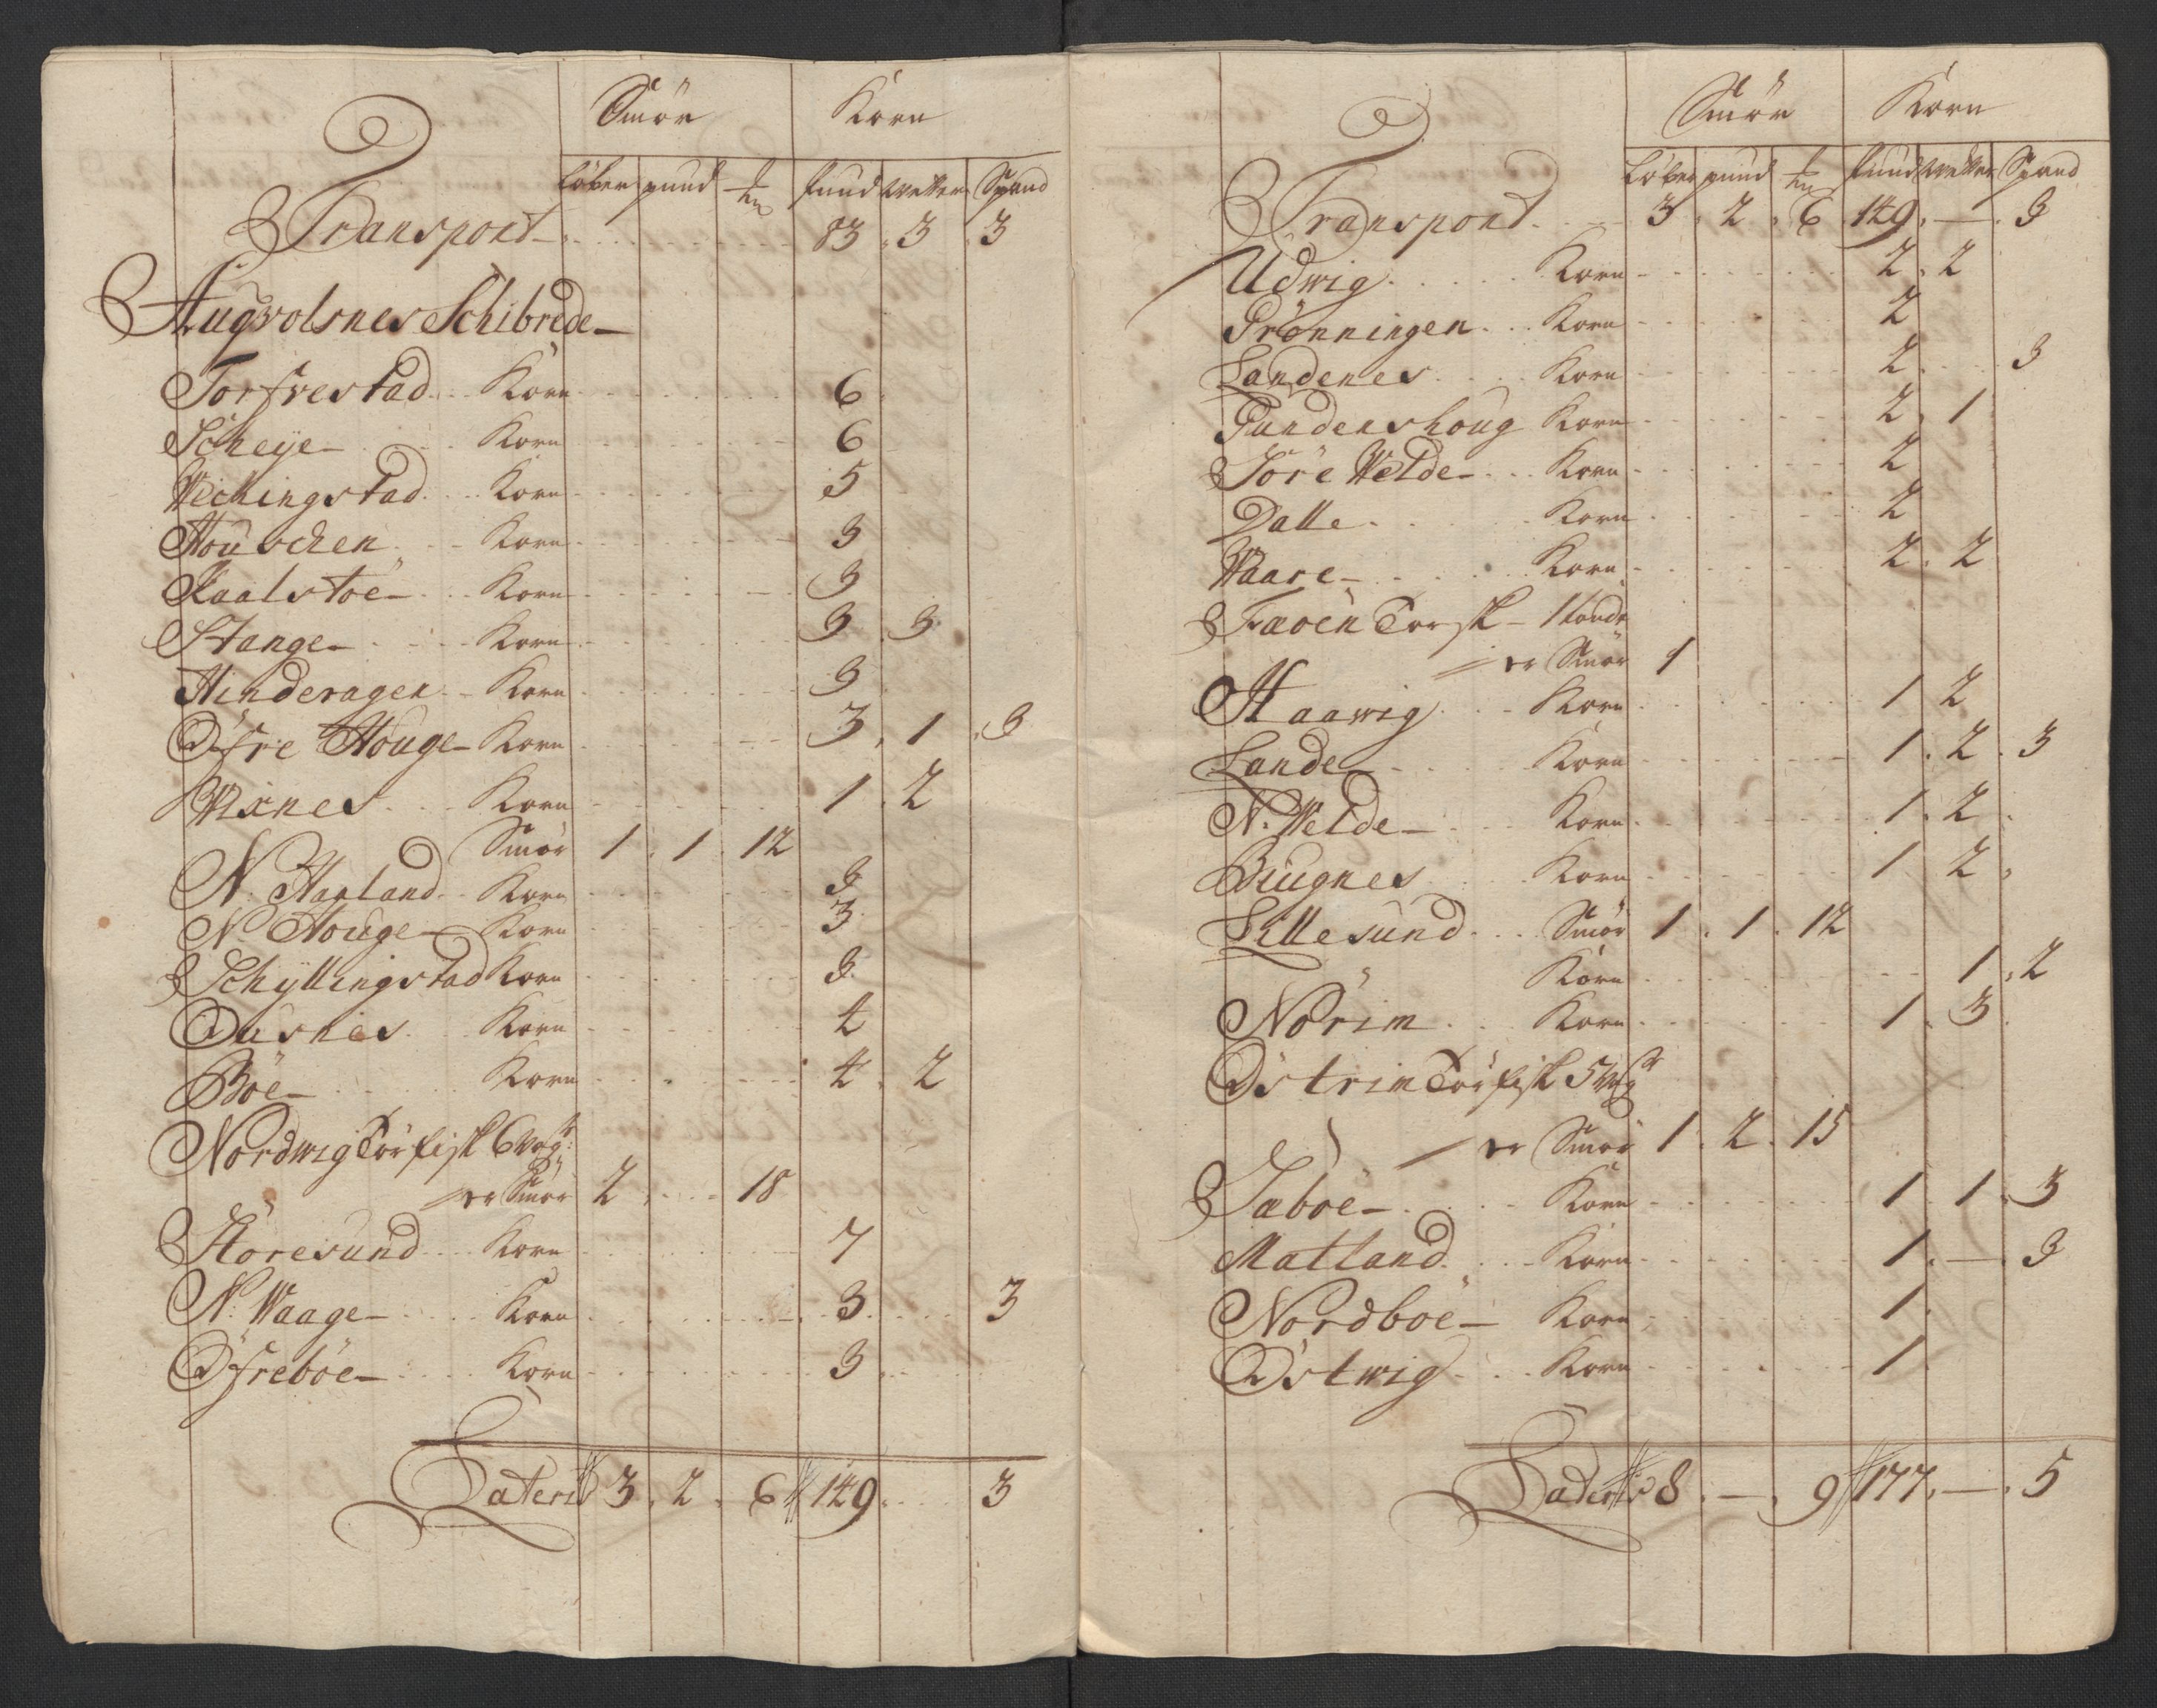 Smör Korn
Löber pund ℔ Pund Wetter Spand
Transport 83 3 3
Augvolsnes Schibrede
Torfvestad Korn 6
Scheye Korn 6
Wichingstad Korn 5
Housschen Korn 3
Kaalstöe Korn 3
Stange Korn 3 3
Hinderagen Korn 3
Öfre Houge Korn 3 1 3
Wixnes Korn 1 2
Smör 1 1 12
N. Hapland Korn 3
N. Houge Korn 3
Schyllingstad Korn 3
Qusnes Korn 4
Böe Korn 4 2
Nordwig Törfisk 6 wog:
er Smör 2 18
Störesund Korn 7
N. Waage Korn 3 3
Öfreböe Korn 3
Lateris 3 2 6 149 3
Smör Korn
Löber pund ℔ Pund Wetter Spand
Transport 3 2 6 149 — 3
Udwig Korn 2 2
Grönningen Korn 2
Landenes Korn 2 3
Gundershoug Korn 2 1
Söre Welde Korn 2
Dalle Korn 2
Waare Korn 2 2
Fæöen Torsk 1 tönde
er Smör 1
Haawig Korn 1 2
Lande Korn 1 2 3
N. Welde Korn 1 2
Bugnes Korn 1 2
Lillesund Smör 1 1 12
Korn 1 2
Nörim Korn 1 3
Östrim Törfisk 5 wog
er Smör 1 2 15
Saböe Korn 1 1 3
Matland Korn 1 — 3
Nordböe Korn 1
Östwig Korn 1
Lateris 8 — 9 177 — 5